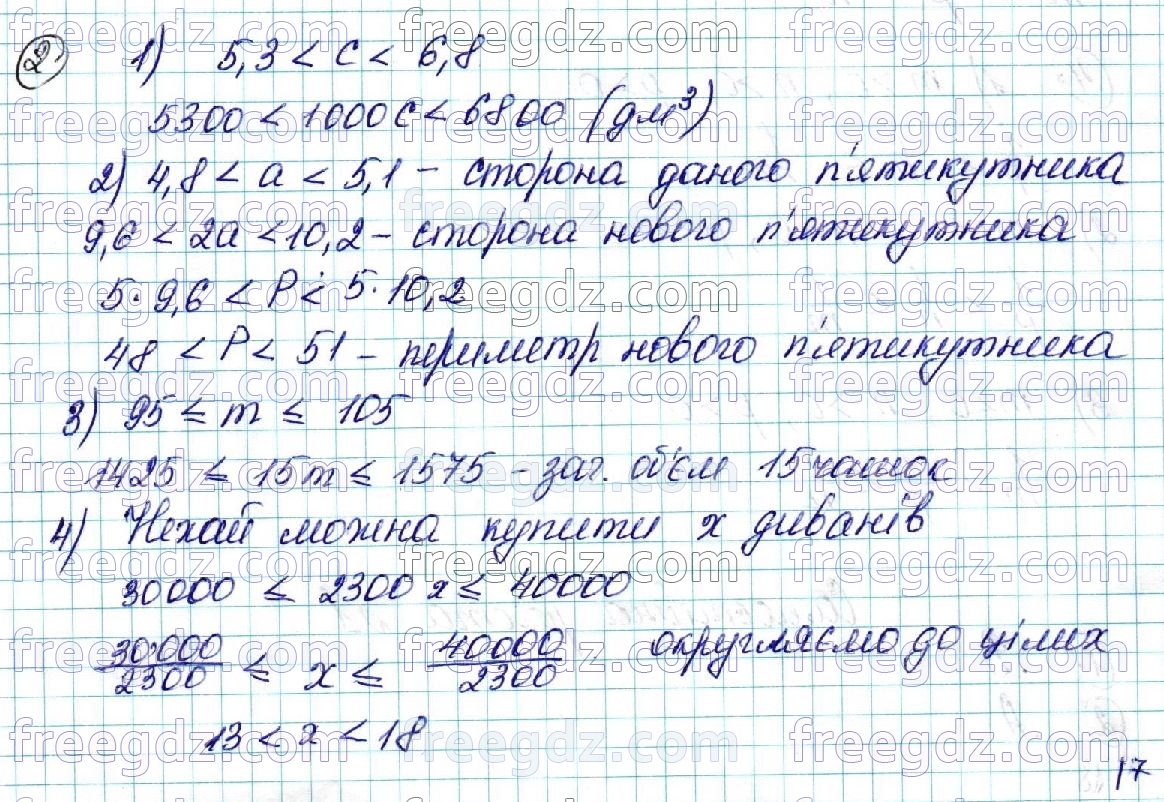 22
1) 5,3 < c < 6,8
5300 < 1000c < 6800 (дм³)
2) 4,8 < a < 5,1 – сторона даного п'ятикутника
9,6 < 2a < 10,2 – сторона нового п'ятикутника
5·9,6 < P < 5·10,2
48 < P < 51 – периметр нового п'ятикутника
3) 95 ≤ m ≤ 105
1425 ≤ 15m ≤ 1575 – заг. об'єм 15 чашок
4) Нехай можна купити x диванів
30000 ≤ 2300x ≤ 40000
30000/2300 ≤ x ≤ 40000/2300 округляємо до цілих
13 < x < 18
17
freegdz.com